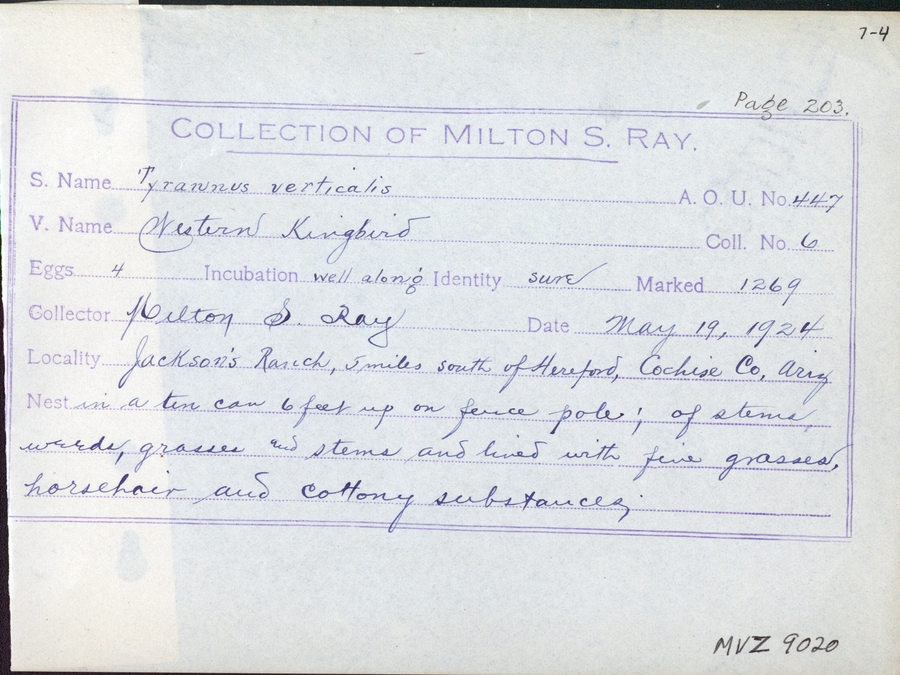 7-4
Page 203.
COLLECTION OF MILTON S. RAY.
S. Name Tyrannus verticalis A. O. U. No. 447
V. Name Western Kingbird Coll. No. 6
Eggs 4 Incubation well along Identity sure Marked 1269
Collector Milton S. Ray Date May 19, 1924
Locality Jackson's Ranch, 5 miles south of Hereford, Cochise Co, Ariz
Nest in a tin can 6 feet up on fence pole; of stems,
weeds, grasses and stems and lined with fine grasses,
horsehair and cottony substances;
MVZ 9020